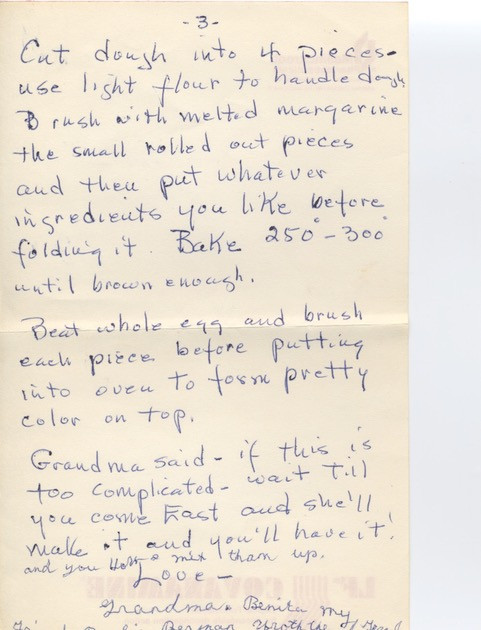 -3-
Cut dough into 4 pieces-
use light flour to handle dough
Brush with melted margarine
the small rolled out pieces
and then put whatever
ingredients you like before
folding it. Bake 250° - 300°
until brown enough.
Beat whole egg and brush
each piece before putting
into oven to form pretty
color on top.
Grandma said - if this is
too complicated - wait till
you come East and she'll
make it and you'll have it!
and you mix them up.
Love -
Grandma. Benita my
friend Berman wrote the